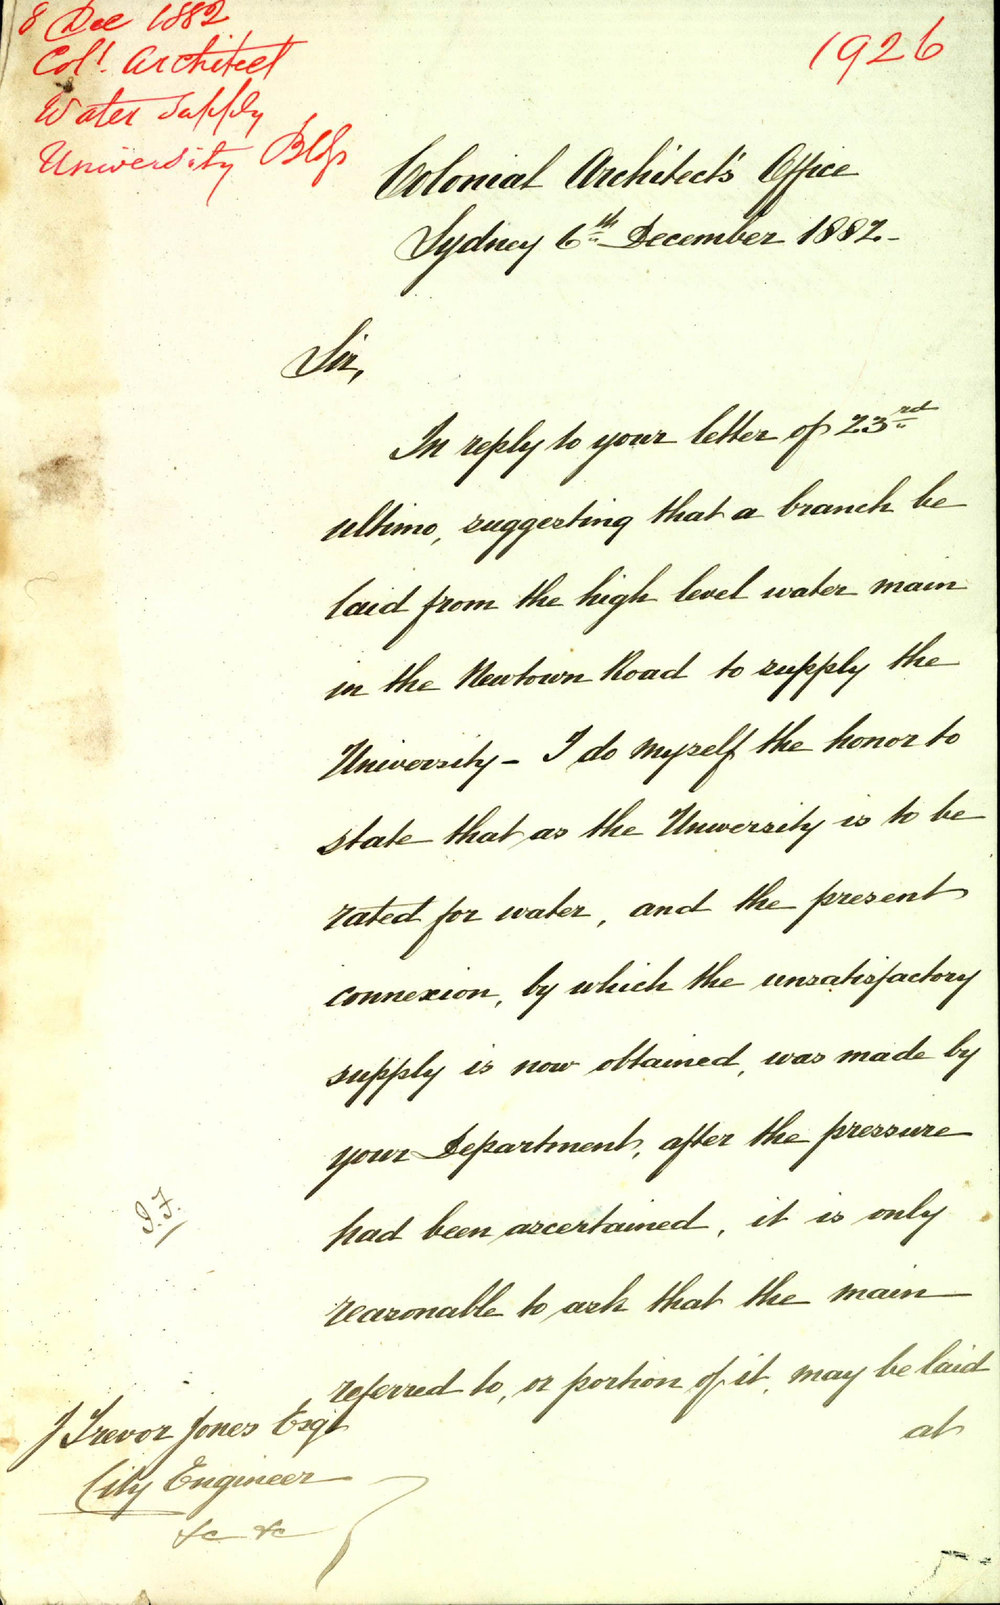 8 Dec 1882
Col! Architect
Water Supply
University Bldgs
1926
Colonial Architect's Office
Sydney 6th December 1882-
Sir,
In reply to your letter of 23rd
ultimo, suggesting that a branch be
laid from the high level water main
in the Newtown Road to supply the
University - I do myself the honor to
state that as the University is to be
rated for water, and the present
connexion, by which the unsatisfactory
supply is now obtained, was made by
your Department, after the pressure
had been ascertained, it is only
reasonable to ask that the main
referred to, or portion of it, may be laid
at
J Trevor Jones Esqr
City Engineer
&c &c